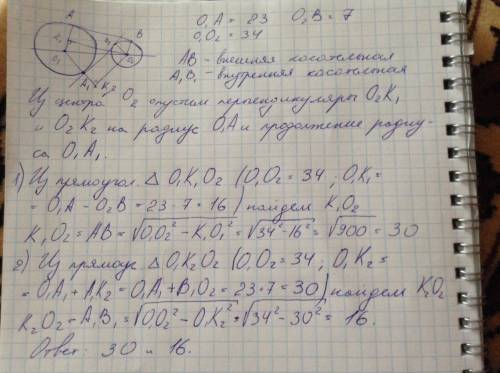 A B O₁ O₂ K₁ A₁ K₂ B₁
O₁A = 23 O₂B = 7
O₁O₂ = 34
AB - внешняя касательная
A₁B₁ - внутренняя касательная
Из центра O₂ опустим перпендикуляры O₂K₁
и O₂K₂ на радиус O₁A и продолжение радиу-
са O₁A₁.
1) Из прямоугол. Δ O₁K₁O₂ (O₁O₂ = 34; O₁K₁ =
= O₁A - O₂B = 23-7 = 16) найдем K₁O₂
K₁O₂ = AB = √O₁O₂² - K₁O₁² = √34² - 16² = √900 = 30
2) Из прямоуг. Δ O₁K₂O₂ (O₁O₂ = 34; O₁K₂ =
= O₁A₁ + A₁K₂ = O₁A₁ + B₁O₂ = 23+7 = 30) найдем K₂O₂
K₂O₂ = A₁B₁ = √O₁O₂² - O₁K₂² = √34² - 30² = 16.
Ответ: 30 и 16.